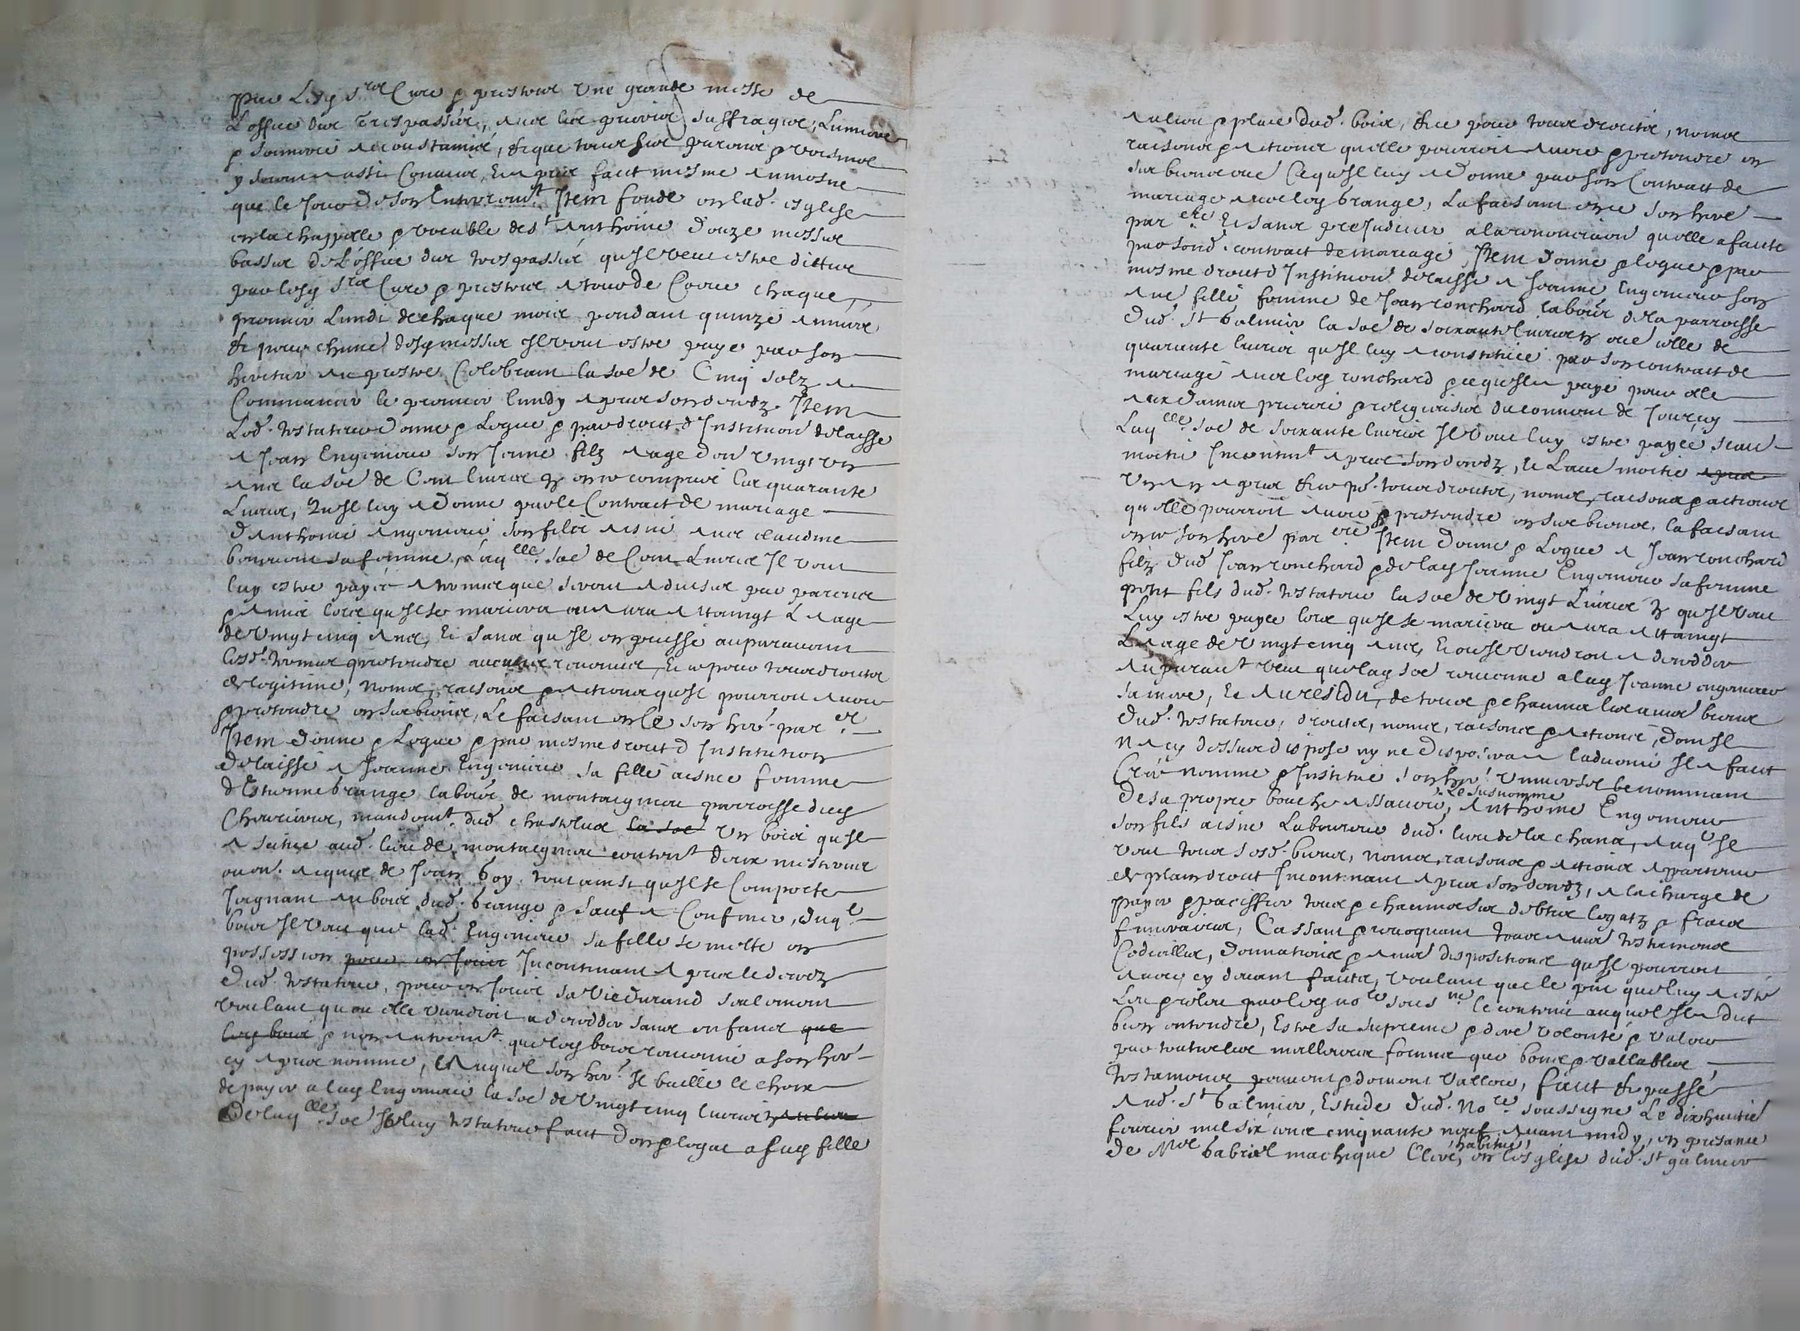 par lesq srs Cure & prestres une grande messe de
L'office des trespassés, avec les prieres suffrages, Luminere
& sonnerie accoustumée, & que tous ses parens & voisins
y soient assis Conviés, Et y soit faict mesme aumosne
que le jour de son Enterremt. Item fonde en lad. esglise
en la chappelle & vocable de st Anthoine Douze messes
basses de L'office des trespassés qu'il veut estre dittes
par lesq srs Cure & prestres a tour de Corne chaque
premier Lundi de chaque mois pendant quinze années
& pour chune desq messes Il veut estre paye par son
heritier au prestre Celebrant la soe de Cinq solz a
Commancer le premier lundy apres son deced. Item
Led. testateur donne & Legue & par droict d'Institution delaisse
a Jean Engomieu son Jeune filz aage d'on vingt un
ans la soe de Cent livres en ce compris les quarante
Livres, Qu'il luy a Donne par le Contract de mariage
d'Anthoine Engomieu son filz aisné avec claudine
sa femme, laqlle soe de Cent Livres Il veut
luy estre payer a termes que seront advisés par parens
& amis lors qu'il se mariera ou aura attaingt L'aage
de Vingt cinq ans, Et sans qu'il en puisse auparavant
lesd. termes pretendre aucun revenu, Et ce pour tous droicts
de legitime, noms, raisons & actions qu'il pourroit avoir
& pretendre en ses biens, Le faisant en ce son her. par er
Item donne & Legue & par mesme droict d'Institution
delaisse a Jeanne Engomieu sa fille aisnee femme
d'Estienne brange labour. de montaigneu parroisse duq
Chevrieres, mandemt. dud. chasteaux la soe Un bois qu'il
a scitué aud. lieu de montaigneu content. deux mesteries
ou en. acquis de Jean Goy, tout ainsi qu'il se Comporte
Joignant au bois dud. brange & sauf a Confiner, duql
bois Il veut que lad. Engomieu sa fille se mette en
possession pour en jouir Incontinant apres le deced
Dud. testateur, pour en jouir sa vie durand seulement
voulant qu'ou elle viendroit a decedder sans enfans que
lesq bois & non autremt. que lesq bois revienne a son her.
cy apres nomme, Auquel son her. Il baille le choix
de payer a laq Engomieu la soe de Vingt cinq livres au lieu
De laqlle soe Il luy testateur faict don & legat a sacq fille
au lieu & place dud. bois, & ce pour tous droicts, noms
raisons & actions qu'elle pourroit avoir & pretendre en
ses biens avec Ce qu'il luy a donne par son Contract de
mariage avec leq brange, La faisant en ce son here
par ere Et sans prejudicier a la renonciation qu'elle a faicte
par sond. contract de mariage, Item donne & legue & par
mesme droict d'Institution delaisse a Jeanne Engomieu son
aue. fille femme de Jean ronchard labour. de la parroisse
Dud. St Galmier la soe de soixante livres en ce celle de
quarante livres qu'il luy a constituée par son contract de
mariage avec leq ronchard & ce qu'il a paye pour elle
aux dames prieure & religieuses du convent de Jourcey
Laqlle soe de soixante livres Il veut luy estre payée scav.
moitie Incontint. apres son deced, Et L'aue moitie apres
Un an apres & ce pr. tous droicts, noms, raisons & actions
qu'elle pourroit avoir & pretendre en ses biens, la faisant
en ce son here par ere Item donne & Legue a Jean ronchard
filz dud. Jean ronchard & de laq Jeanne Engomieu sa femme
petit fils dud. testateur la soe de Vingt Livres qu'il veut
Luy estre payée lors qu'il se mariera ou aura attaingt
L'aage de Vingt cinq ans, Et ou il viendroit a decedder
auparant. veut que laq soe revienne a laq Jeanne engomieu
sa mere, Et Au residu, de tous & chacuns les aues biens
Dud. testateur, droicts, noms, raisons & actions, dont Il
N'a cy dessus dispose ny ne disposera cy apres Il a faict
Cree nomme & Institue son her. Universel le nommant
De sa propre bouche assavoir, Le susnomme Anthoine Engomieu
son fils aisne Laboureur dud. lieu de la chana, auql Il
veut tous sesd. biens, noms, raisons & actions appartenir
de plain droict Incontinant apres son deced, a la charge de
payer & paciffier tous & chacuns ses debtes legatz & fraix
funeraires, Cassant & revoquant tous aues testamens
Codicilles, Donnations & aues dispositions qu'il pourroit
avoir cy devant faicts, voulant que le pnt que luy a este
Leu par leq nore sousne le contenu auquel Il a dict
bien entendre, Estre sa supreme & dere volonté & valoir
par toutes les meilleures formes que bons & vallables
testamens peuvent & doivent valloir, faict & passé
Aud. St Galmier, Estude dud. Nore soussigne Le dixhuictie
febvrier mil six cens cinquante neuf avant midy, en presance
de Mre Gabriel machique Clerc, habitué en l'esglise dud. St galmier